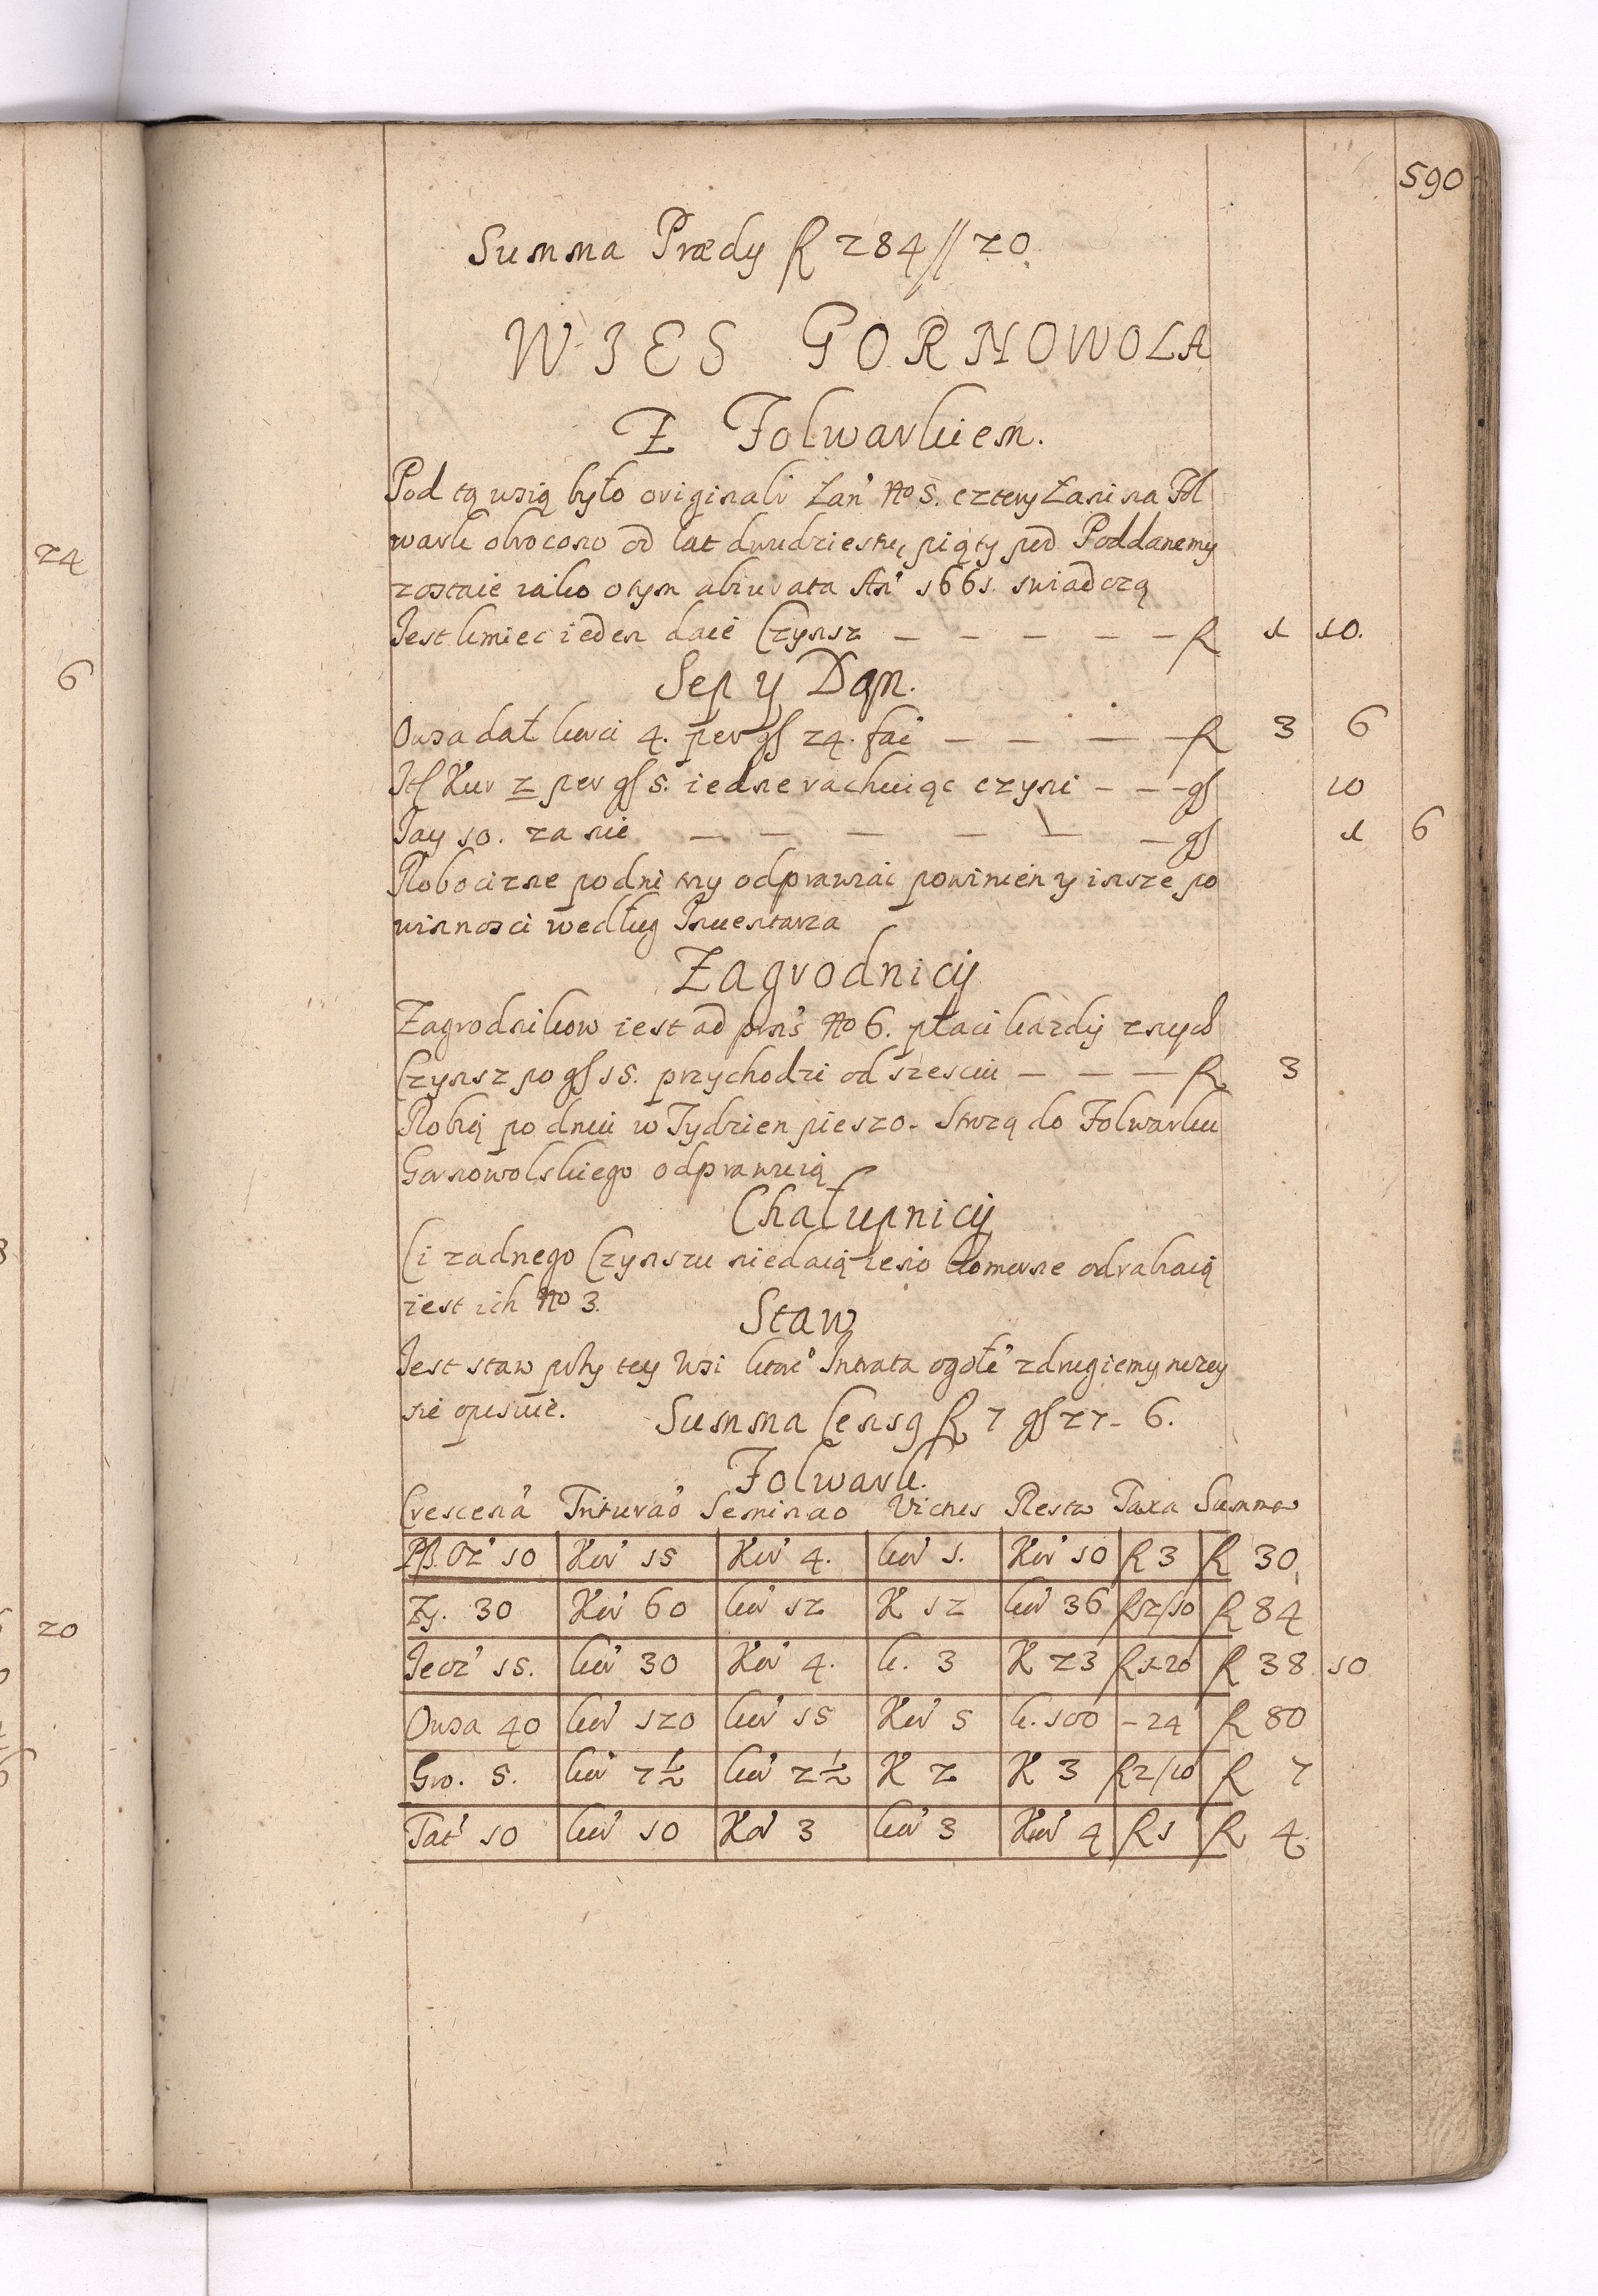 590
Summa Prædy f 284 // 20
WIES GORNOWOLA
Z Folwarkiem.
Pod tą wsią było originalr Łan' No 5. cztery Łani na Fol
wark obrocono od lat dwudziestu, piąty pod Poddanemy
zostaie iako o tym abiurata An' 1661. swiadczą
Jest kmiec ieden daie Czynsz — — — — — f 1 10.
Sep y Dan.
Owsa dał korci 4. per gſ 24. faci — — — — f 3 6
Itſ Kur 2 per gſ 5. iedne rachuiąc czyni - - - gſ 10
Jay 10. za nie — — — — — — gſ 1 6
Robocizne po dni trzy odprawiac powinien y insze po
winnosci według Inuentarza
Zagrodnicij
Zagrodnikow iest ad prns' No 6. płaci kazdij z nych
Czynsz po gſ 15. przychodzi od szesciu — — — f 3
Robią po dniu w Tydzien pieszo. Strozą do Folwarku
Gornowolskiego odprawuią
Chałupnicij
Ci zadnego Czynszu niedaią ieno komorne odrabaią
iest ich No 3.
Staw
Jest staw przy tey Wsi ktore' Intrata ogołe' z drugiemy nizey
sie opisuie. Summa Censg f 7 gſ 27 - 6.
Folwark.
Crescena' Triturao' Seminao Victus Resta Taxa Summa
Pſ. Oz' 10 Kor' 15 Kor' 4. kor' 1. Kor' 10 f 3 f 30.
Zy. 30 Kor' 60 kor' 12 K 12 kor' 36 f 2/10 f 84
Jecz' 15. kor' 30 Kor' 4. k. 3 K 23 f 1-20 f 38 10
Owsa 40 kor' 120 kor' 15 Kor' 5 k. 100 - 24 f 80
Gro. 5. kor' 7½ kor' 2½ K 2 K 3 f 2/10 f 7
Tat' 10 kor' 10 Kor' 3 kor' 3 Kor' 4 f 1 f 4.
24
6
20